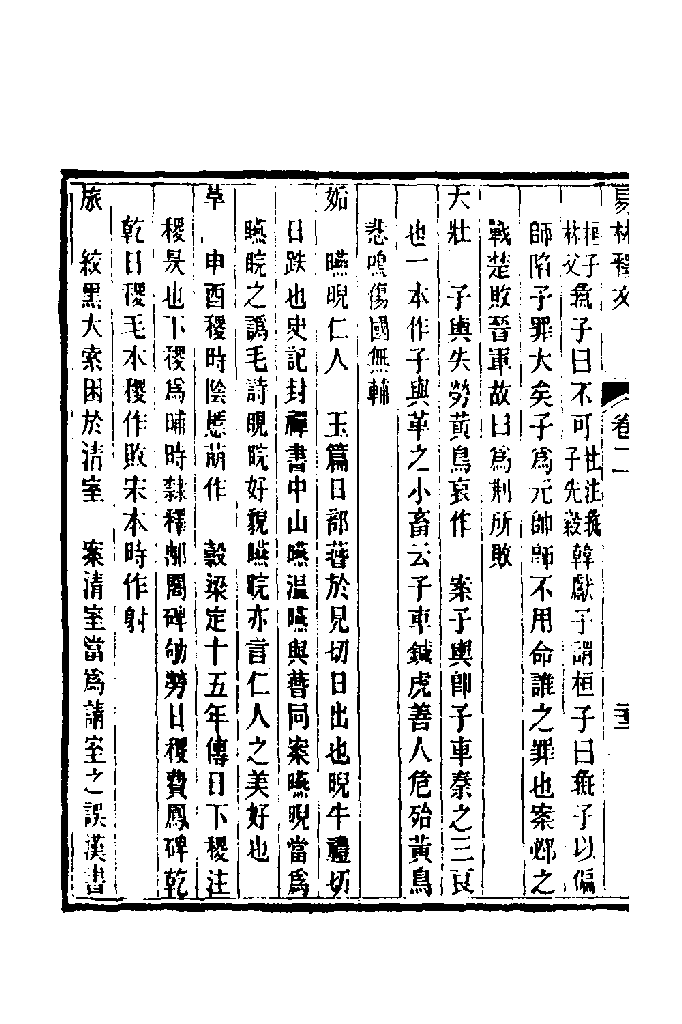 易林釋文 卷二
桓子林父彘子曰不可杜注彘子先縠韓獻子謂桓子曰彘子以偏
師陷子罪大矣子爲元帥師不用命誰之罪也案邲之
戰楚敗晉軍故曰爲荆所敗
大壯 子輿失勞黃鳥哀作 案子輿卽子車秦之三良
也一本作子輿革之小畜云子車鍼虎善人危殆黃鳥
悲鳴傷國無輔
姤 曣晲仁人 玉篇曰部㬫於見切日出也晲牛禮切
日跌也史記封禪書中山曣温曣與㬫同案曣晲當爲
曣睆之譌毛詩睍睆好貌曣睆亦言仁人之美好也
革 申酉稷時陰慝萠作 穀梁定十五年傳日下稷注
稷昃也下稷爲晡時隸釋郙閣碑劬勞日稷費鳳碑乾
乾日稷毛本稷作敗宋本時作射
旅 絞黑大索困於清室 案清室當爲請室之誤漢書